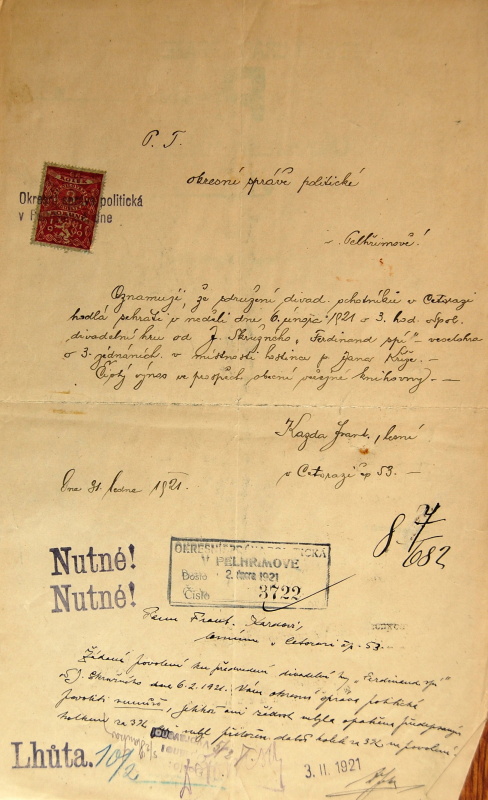 P. T.
okresní správě politické
Okresní správa politická
v dne
v Pelhřimově!
Oznamuji, že sdružení divad. ochotníků v Cetorazi
hodlá sehráti v neděli dne 6. února 1921 o 3. hod. odpol.
divadelní hru od J. Skružného „Ferdinand spí" veselohra
o 3. jednáních. v místnosti hostince p. Jana Kříže. —
Čistý výnos ve prospěch obecní veřejné knihovny. —
Kazda Frant., 
v Cetorazi čp 53. —
Dne 31. ledna 1921.
8 7/682
Nutné!
Nutné!
OKRESNÍ SPRÁVA POLITICKÁ
V PELHŘIMOVĚ
Došlo 2. února 1921
Číslo 3722
Panu Frant. Kazdovi,
v Cetorazi čp. 53.
Žádané povolení ku předvedení divadelní hry „Ferdinand spí"
od J. Skružného dne 6.2.1921. Vám okresní správa politická
povoliti nemůže, jelikož ani žádost nebyla opatřena předepsaným
kolkem za 3 K, aniž byl přiložen další kolek za 3 K na povolení
Lhůta. 10/2
3. II 1921